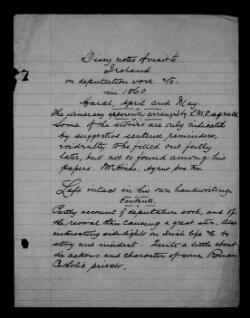 Diary notes of visit to
Ireland
on deputation work &c.
in 1860
March, April and May.
The itinerary apparently arranged by L.M.S. agents
Some of the stories are only indicated
by suggestive sentence reminders,
evidently to be filled out fully
later, but not so found among his
papers.
Left intact in his own handwriting.
Contents.
Partly account of deputation work, and of
the revival then causing a great stir. Also
interesting sidelights on Irish life &c by
story and incident. Quite a little about
the actions and character of some Roman
Catholic priests.